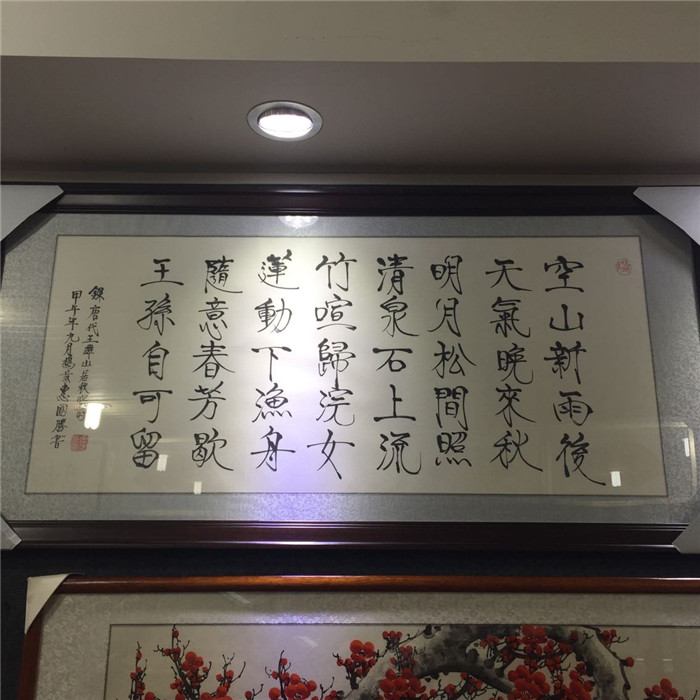 空山新雨後
天氣晚來秋
明月松間照
清泉石上流
竹喧歸浣女
蓮動下漁舟
隨意春芳歇
王孫自可留
錄唐代王
甲午年九月